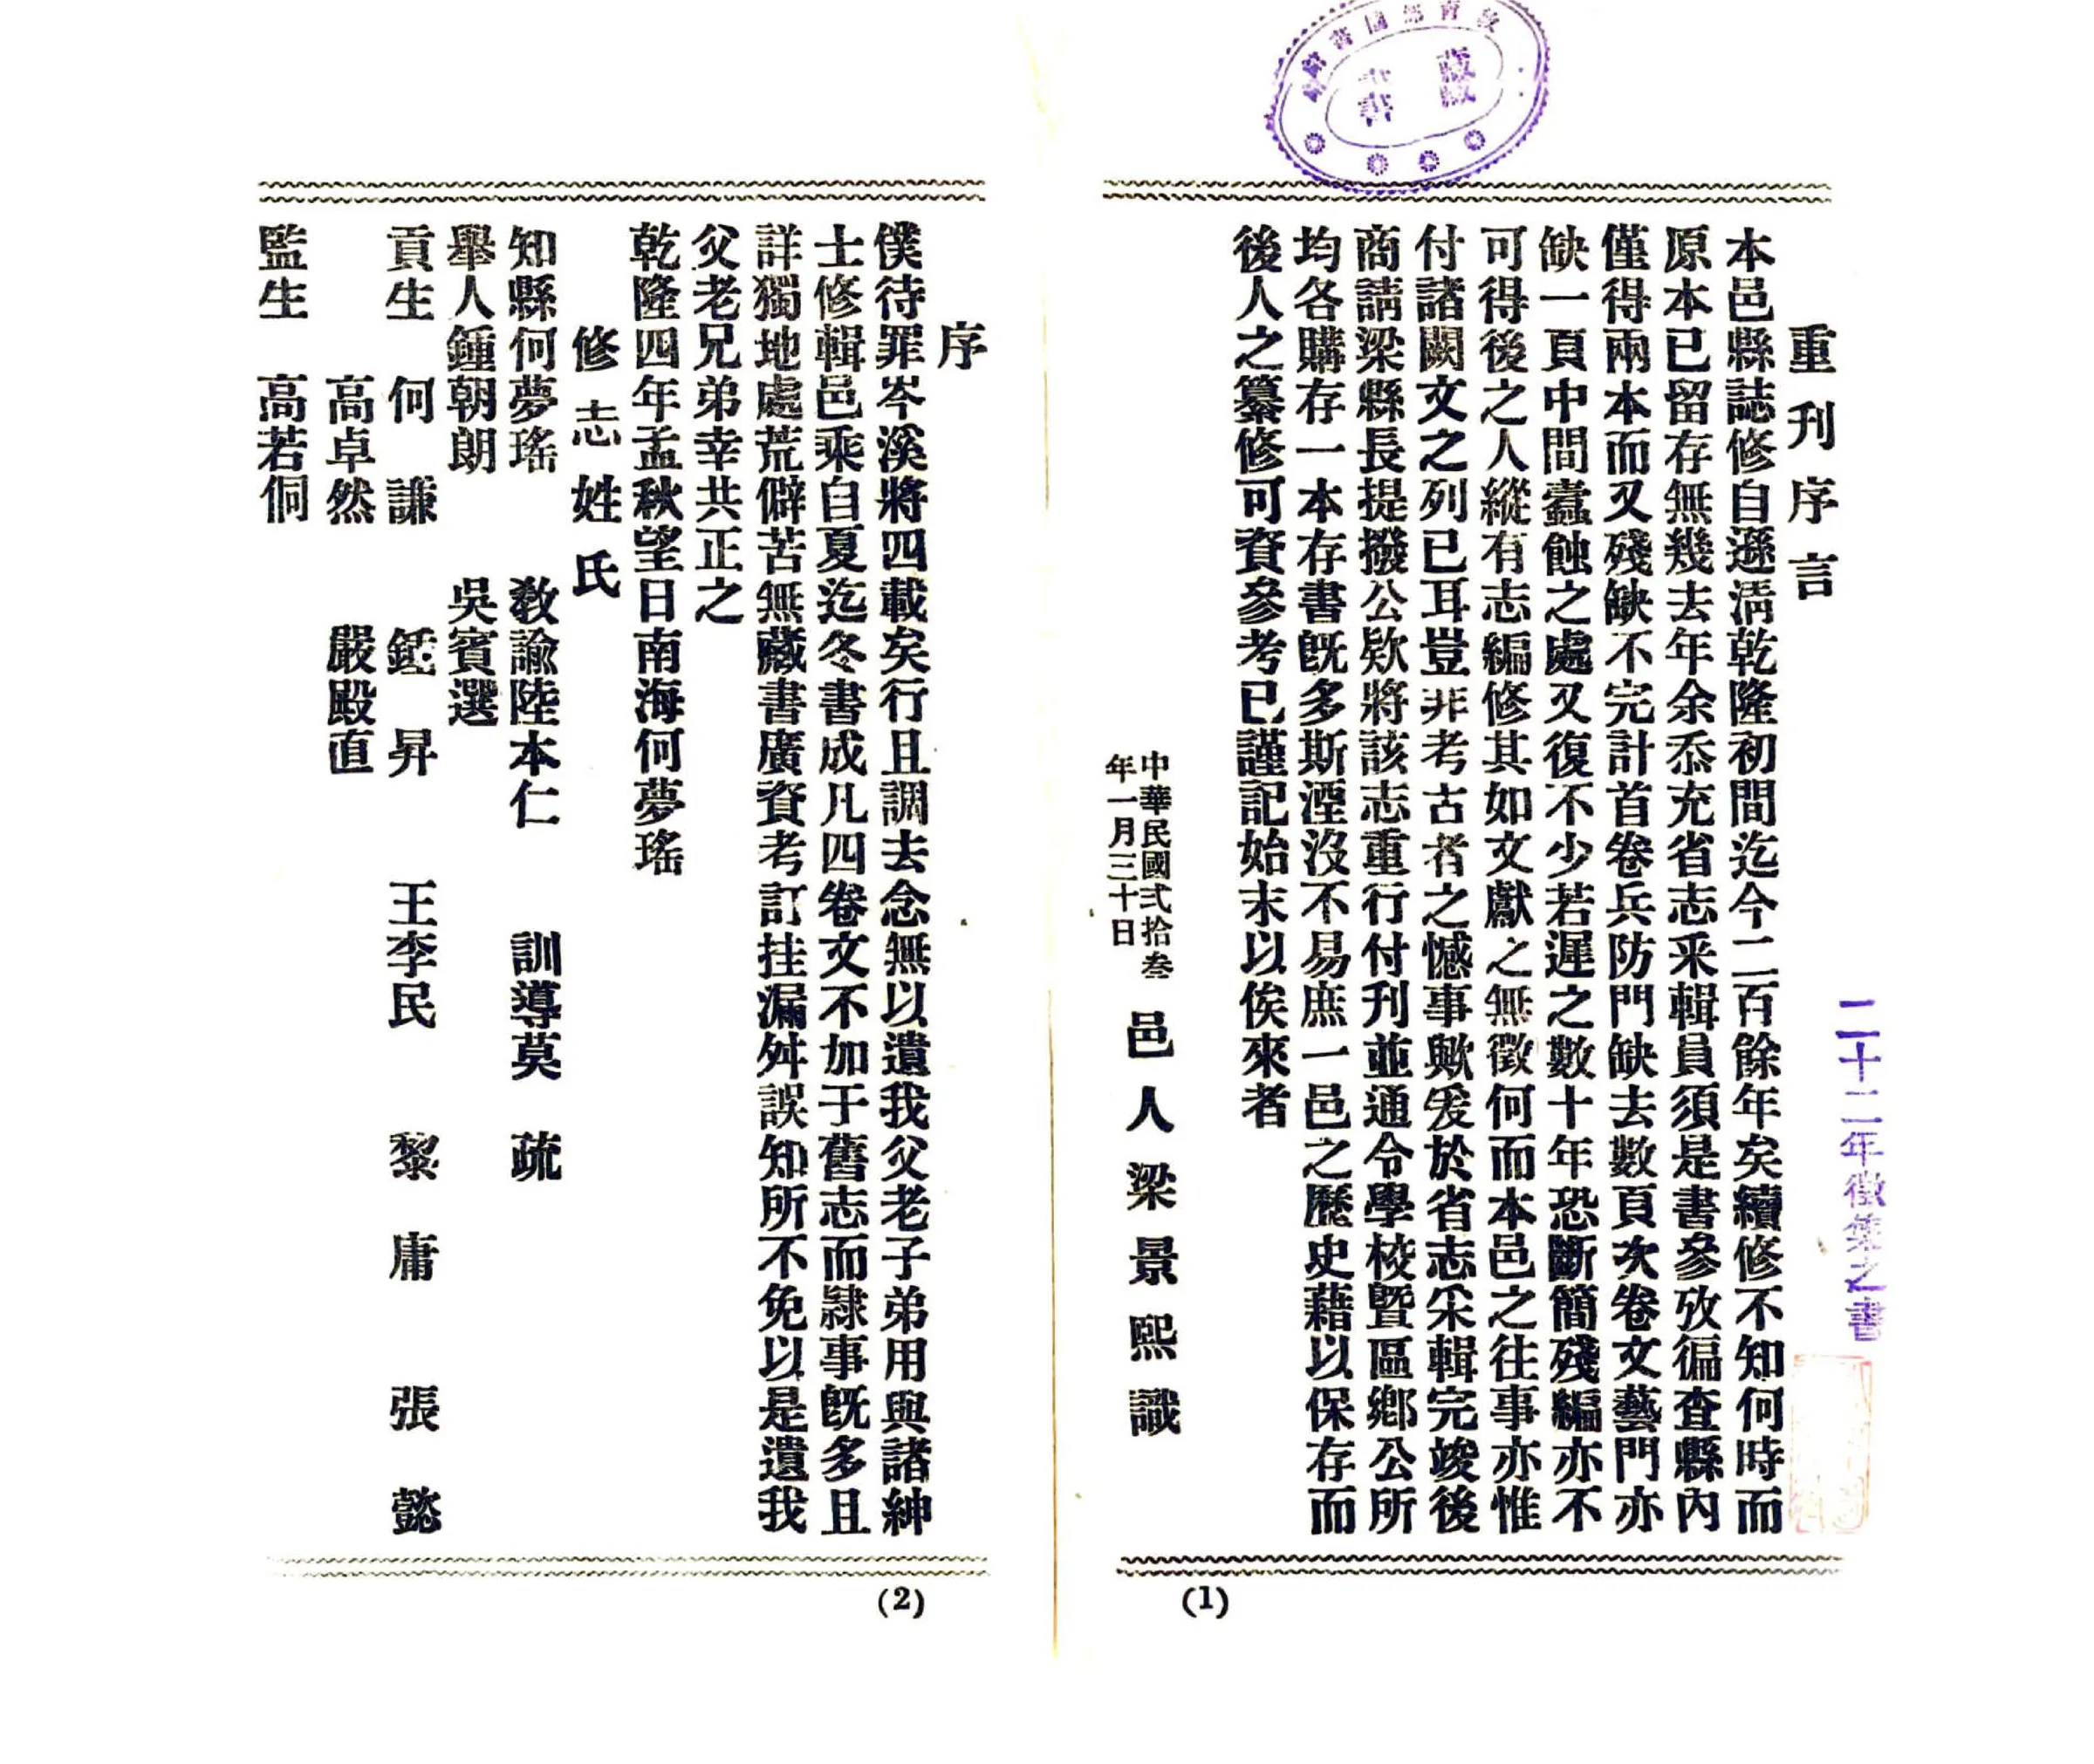 重刊序言
本邑縣誌修自遜淸乾隆初間迄今二百餘年矣續修不知何時而
原本已留存無幾去年余忝充省志采輯員須是書參攷徧查縣內
僅得兩本而又殘缺不完計首卷兵防門缺去數頁次卷文藝門亦
缺一頁中間蠹蝕之處又復不少若遲之數十年恐斷簡殘編亦不
可得後之人縱有志編修其如文獻之無徵何而本邑之往事亦惟
付諸闕文之列已耳豈非考古者之憾事歟爰於省志采輯完竣後
商請梁縣長提撥公欵將該志重行付刊並通令學校暨區鄕公所
均各購存一本存書旣多斯湮沒不易庶一邑之歷史藉以保存而
後人之纂修可資參考已謹記始末以俟來者
中華民國弍拾叁
年一月三十日
邑人梁景熙識
(1)
二十二年徵集之書
敎育部圖書館
藏書
序
僕待罪岑溪將四載矣行且調去念無以遺我父老子弟用與諸紳
士修輯邑乘自夏迄冬書成凡四卷文不加于舊志而隷事旣多且
詳獨地處荒僻苦無藏書廣資考訂挂漏舛誤知所不免以是遺我
父老兄弟幸共正之
乾隆四年孟秋望日南海何夢瑤
修志姓氏
知縣何夢瑤 敎諭陸本仁 訓導莫 疏
舉人鍾朝朗 吳賓選
貢生 何 謙 鍾 昇 王李民 黎 庸 張 懿
高卓然 嚴殿直
監生 高若侗
(2)